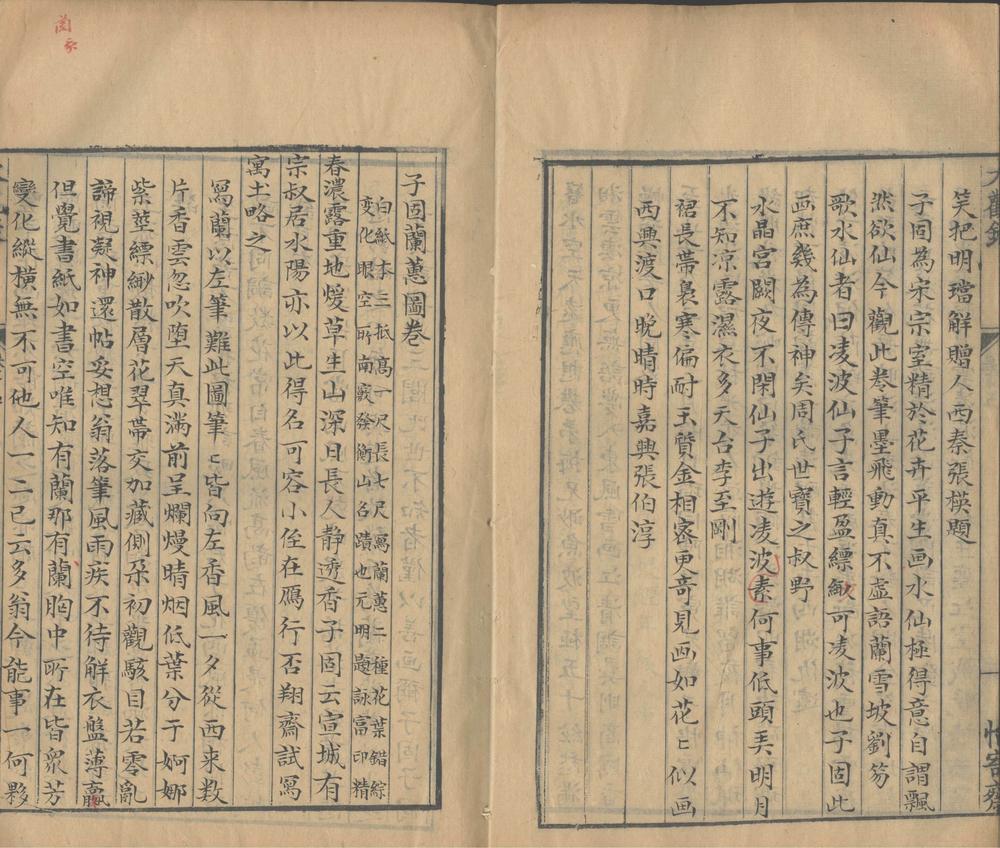 笑把明璫解贈人西秦張模題
子固為宋宗室精於花卉平生画水仙極得意自謂飄
然欲仙今觀此卷筆墨飛動真不虛語蘭雪坡劉笏
歌水仙者曰凌波仙子言輕盈縹緲可凌波也子固此
画庶幾為傳神矣周氏世寶之叔野
水晶宮闕夜不閑仙子出遊凌波素何事低頭弄明月
不知凉露濕衣多天台李至剛
裙長帶裊寒偏耐玉質金相密更奇見画如花〻似画
西興渡口晚晴時嘉興張伯淳
子固蘭蕙圖卷
白紙本三抵高一尺長七尺寫蘭蕙二種花葉錯綜
变化眼空所南襲發衡山名蹟也元明題詠富印精
春濃露重地煖草生山深日長人静透香子固云宣城有
宗叔居水陽亦以此得名可容小侄在鴈行否翔齋試寫
寓土略之
寫蘭以左筆難此圖筆〻皆向左香風一夕從西来數
片香雲忽吹堕天真満前呈爛熳晴烟低葉分于婀娜
紫莖縹緲散層花翠帶交加藏側朶初觀駭目若零亂
諦視凝神還帖妥想翁落筆風雨疾不待解衣盤薄臝
但覺書紙如書空唯知有蘭那有蘭胸中所在皆衆芳
變化縱橫無不可他人一二已云多翁今能事一何夥